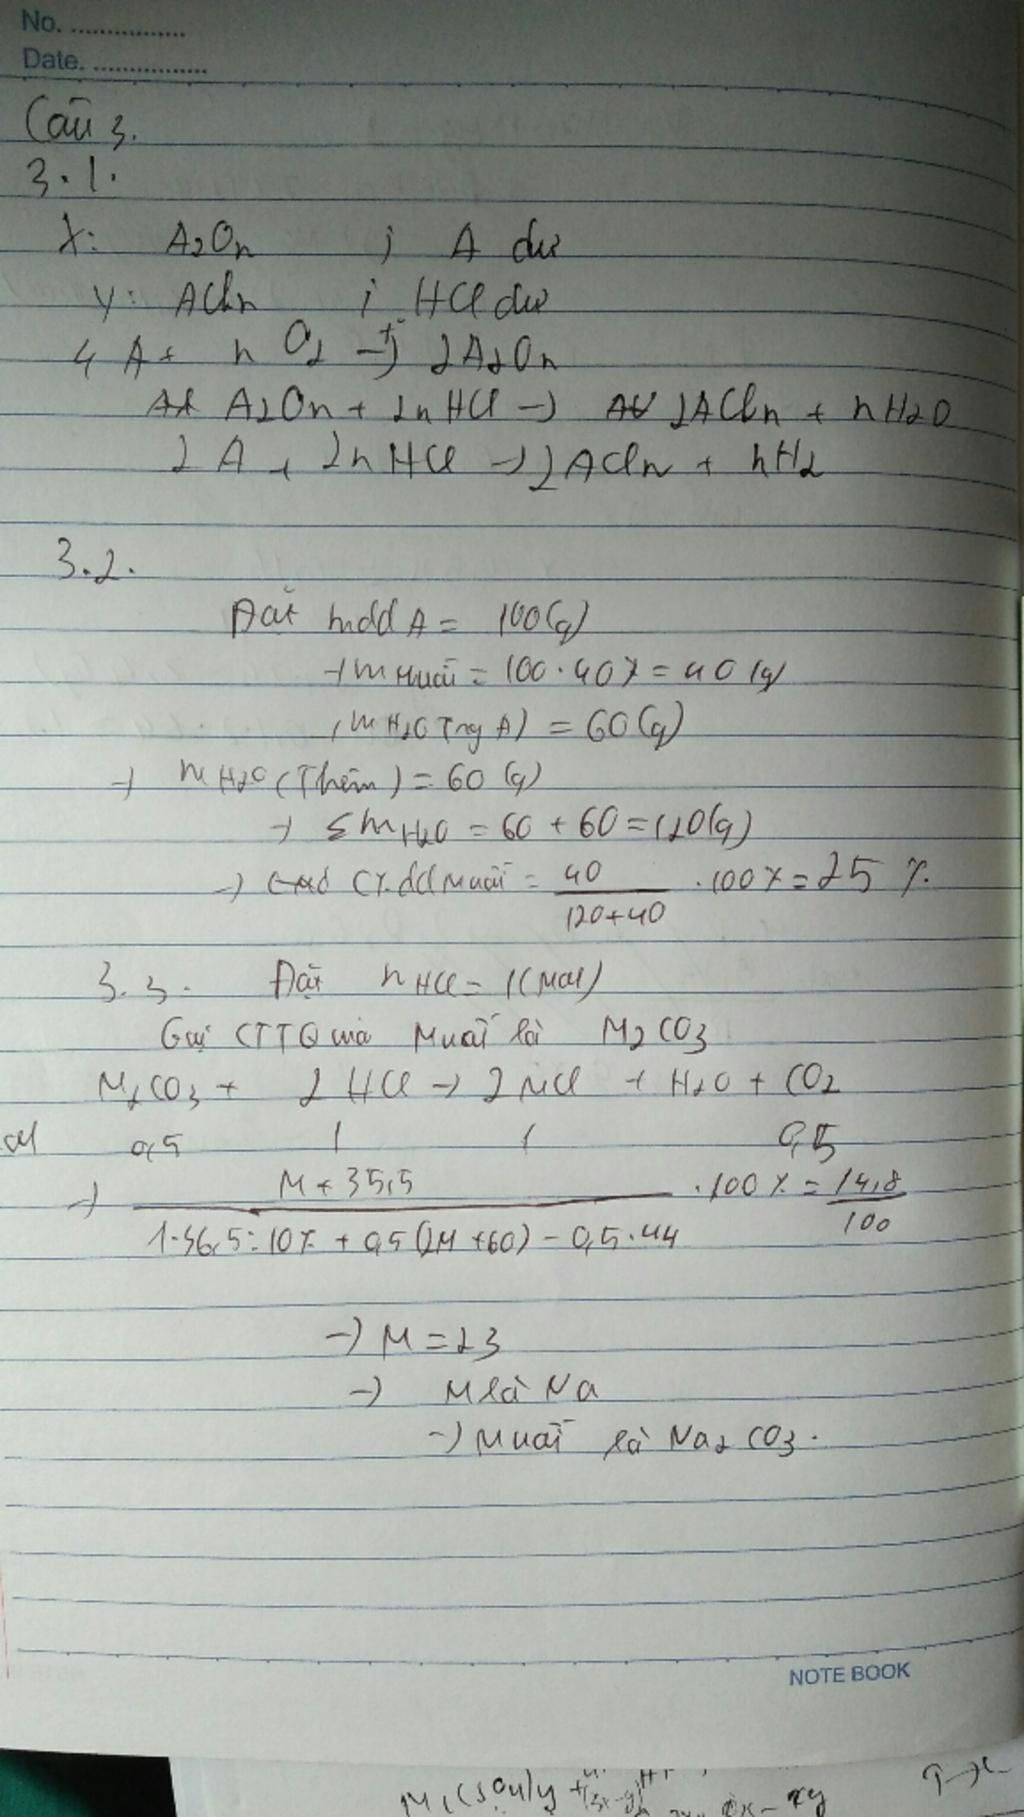 No. ................
Date. ................
Câu 3.
3.1.
X: A2On ; A dư
Y: ACln ; HCl dư
4 A + n O2 -t°-> 2A2On
A2On + 2nHCl -> 2ACln + nH2O
2 A + 2nHCl -> 2ACln + nH2
3.2.
Đặt mdd A = 100(g)
-> m muối = 100.40% = 40 (g)
, m H2O (Trg A) = 60(g)
-> m H2O (Thêm) = 60(g)
-> Σm H2O = 60 + 60 = 120(g)
-> C% dd muối = 40/(120+40) .100% = 25 %.
3.3. Đặt n HCl = 1(mol)
Gọi CTTQ của Muối là M2CO3
M2CO3 + 2 HCl -> 2 MCl + H2O + CO2
ol 0,5 1 1 0,5
-> (M + 35,5)/(1.36,5:10% + 0,5(2M+60) - 0,5.44) .100% = 14,8/100
-> M = 23
-> M là Na
-> Muối là Na2CO3.
NOTE BOOK